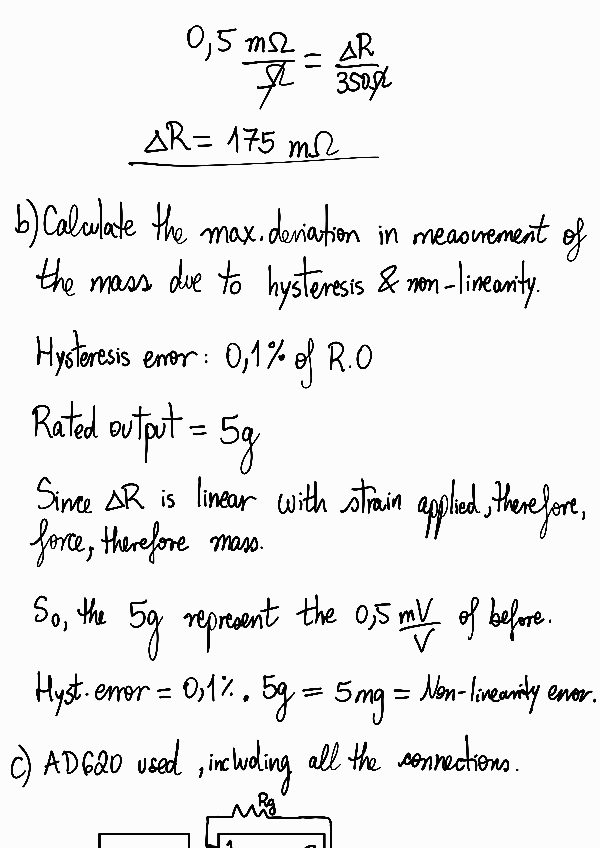 0,5 mΩ/Ω = ΔR/350Ω
ΔR = 175 mΩ
b) Calculate the max. deviation in measurement of
the mass due to hysteresis & non-linearity.
Hysteresis error: 0,1% of R.O
Rated output = 5g
Since ΔR is linear with strain applied, therefore,
force, therefore mass.
So, the 5g represent the 0,5 mV/V of before.
Hyst. error = 0,1% . 5g = 5mg = Non-linearity error.
c) AD620 used, including all the connections.
Rg
1